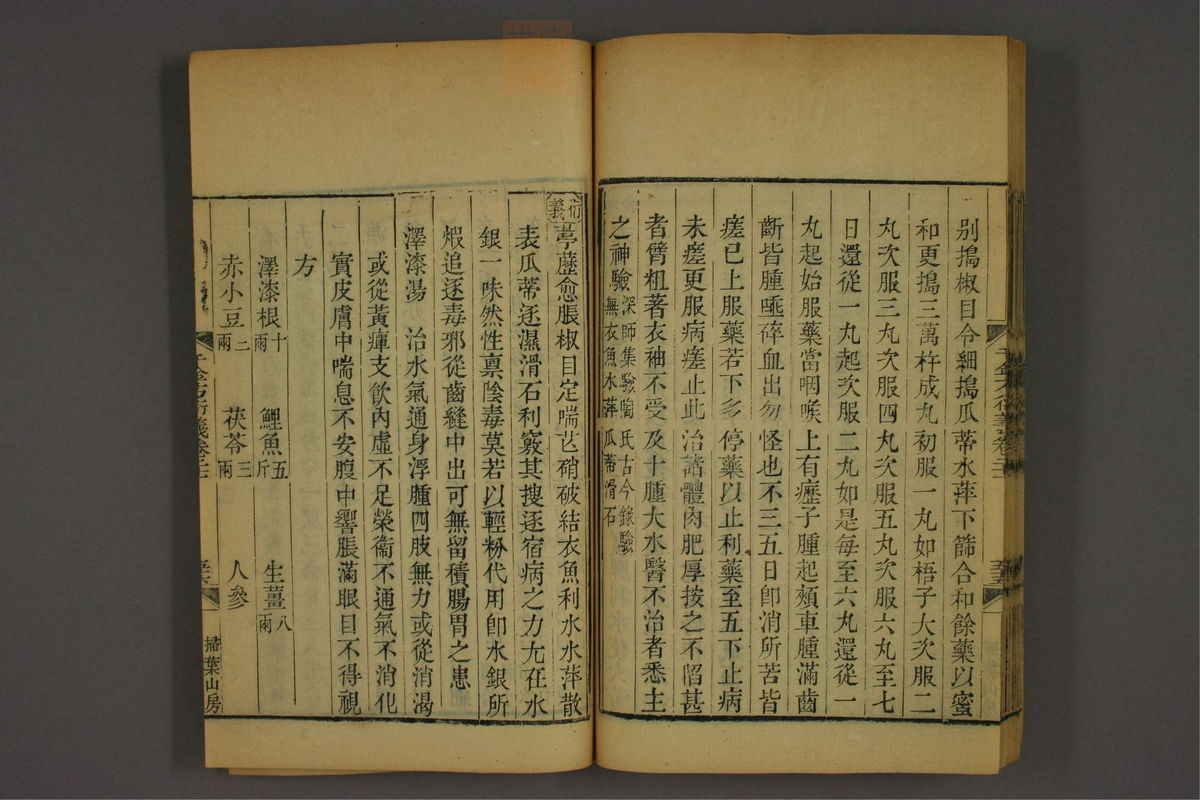 別搗椒目令細搗瓜蒂水萍下篩合和餘藥以蜜
和更搗三萬杵成丸初服一丸如梧子大次服二
丸次服三丸次服四丸次服五丸次服六丸至七
日還從一丸起次服二丸如是每至六丸還從一
丸起始服藥當咽喉上有瘞子腫起頰車腫滿齒
斷皆腫唾碎血出勿怪也不三五日卽消所苦皆
瘥已上服藥若下多停藥以止利藥至五下止病
未瘥更服病瘥止此治諸體肉肥厚按之不陷甚
者臂粗著衣袖不受及十腫大水醫不治者悉主
之神驗深師集驗陶氏古今錄驗
無衣魚水萍瓜蒂滑石
衍義
葶藶愈脹椒目定喘芒硝破結衣魚利水水萍散
表瓜蒂逐濕滑石利竅其搜逐宿病之力尤在水
銀一味然性禀陰毒莫若以輕粉代用卽水銀所
煅追逐毒邪從齒縫中出可無留積腸胃之患
澤漆湯 治水氣通身浮腫四肢無力或從消渴
或從黃癉支飲內虛不足榮衛不通氣不消化
實皮膚中喘息不安腹中響脹滿眼目不得視
方
澤漆根十兩 鯉魚五斤 生薑八兩
赤小豆二兩 茯苓三兩 人參
千金方衍義卷二十一
掃葉山房